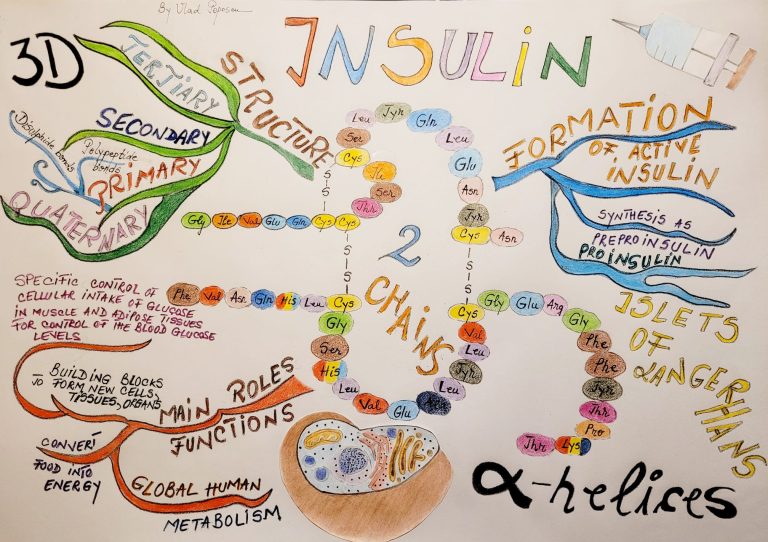 By Vlad Poposcu
INSULIN
3D
STRUCTURE
TERTIARY
SECONDARY
Disulphide bonds
Polypeptide bonds
PRIMARY
QUATERNARY
Leu Tyr Gln
Ser Leu
Cys Ile Glu
S Ser Asn
S Thr Tyr
Gly Ile Val Glu Gln Cys Cys
Cys Asn
S S
S S
2 CHAINS
Phe Val Asn Gln His Leu Cys
Cys Gly Glu Arg Gly
Gly Val Phe
Ser Leu Phe
His Tyr Tyr
Leu Leu Thr
Val Glu Pro
Thr Lys
FORMATION
OF ACTIVE
INSULIN
SYNTHESIS AS
PREPROINSULIN
PROINSULIN
ISLETS
OF
LANGERHANS
SPECIFIC CONTROL OF
CELLULAR INTAKE OF GLUCOSE
IN MUSCLE AND ADIPOSE TISSUES
FOR CONTROL OF THE BLOOD GLUCOSE
LEVELS
MAIN ROLES
FUNCTIONS
BUILDING BLOCKS
TO FORM NEW CELLS,
TISSUES, ORGANS
CONVERT
FOOD INTO
ENERGY
GLOBAL HUMAN
METABOLISM
α-helices